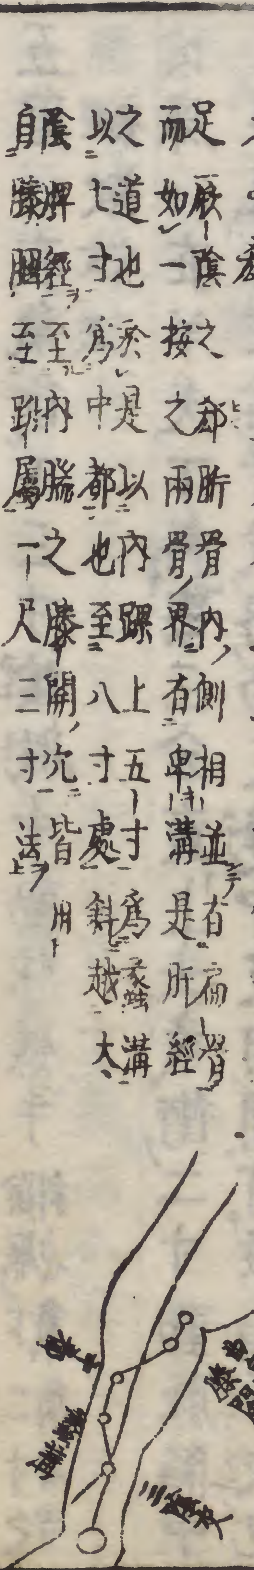 足厥陰之郄䯒骨内側相並有扁骨
而如一按之兩骨界有卑溝是肝經
之道也於是以内踝上五寸爲蠡溝
以七寸爲中都也至八寸處斜越太
陰脾經至内腨之膝關穴皆用
自膝膕至跗屬一尺三寸法
中都
蠡溝
三陰交
膝関